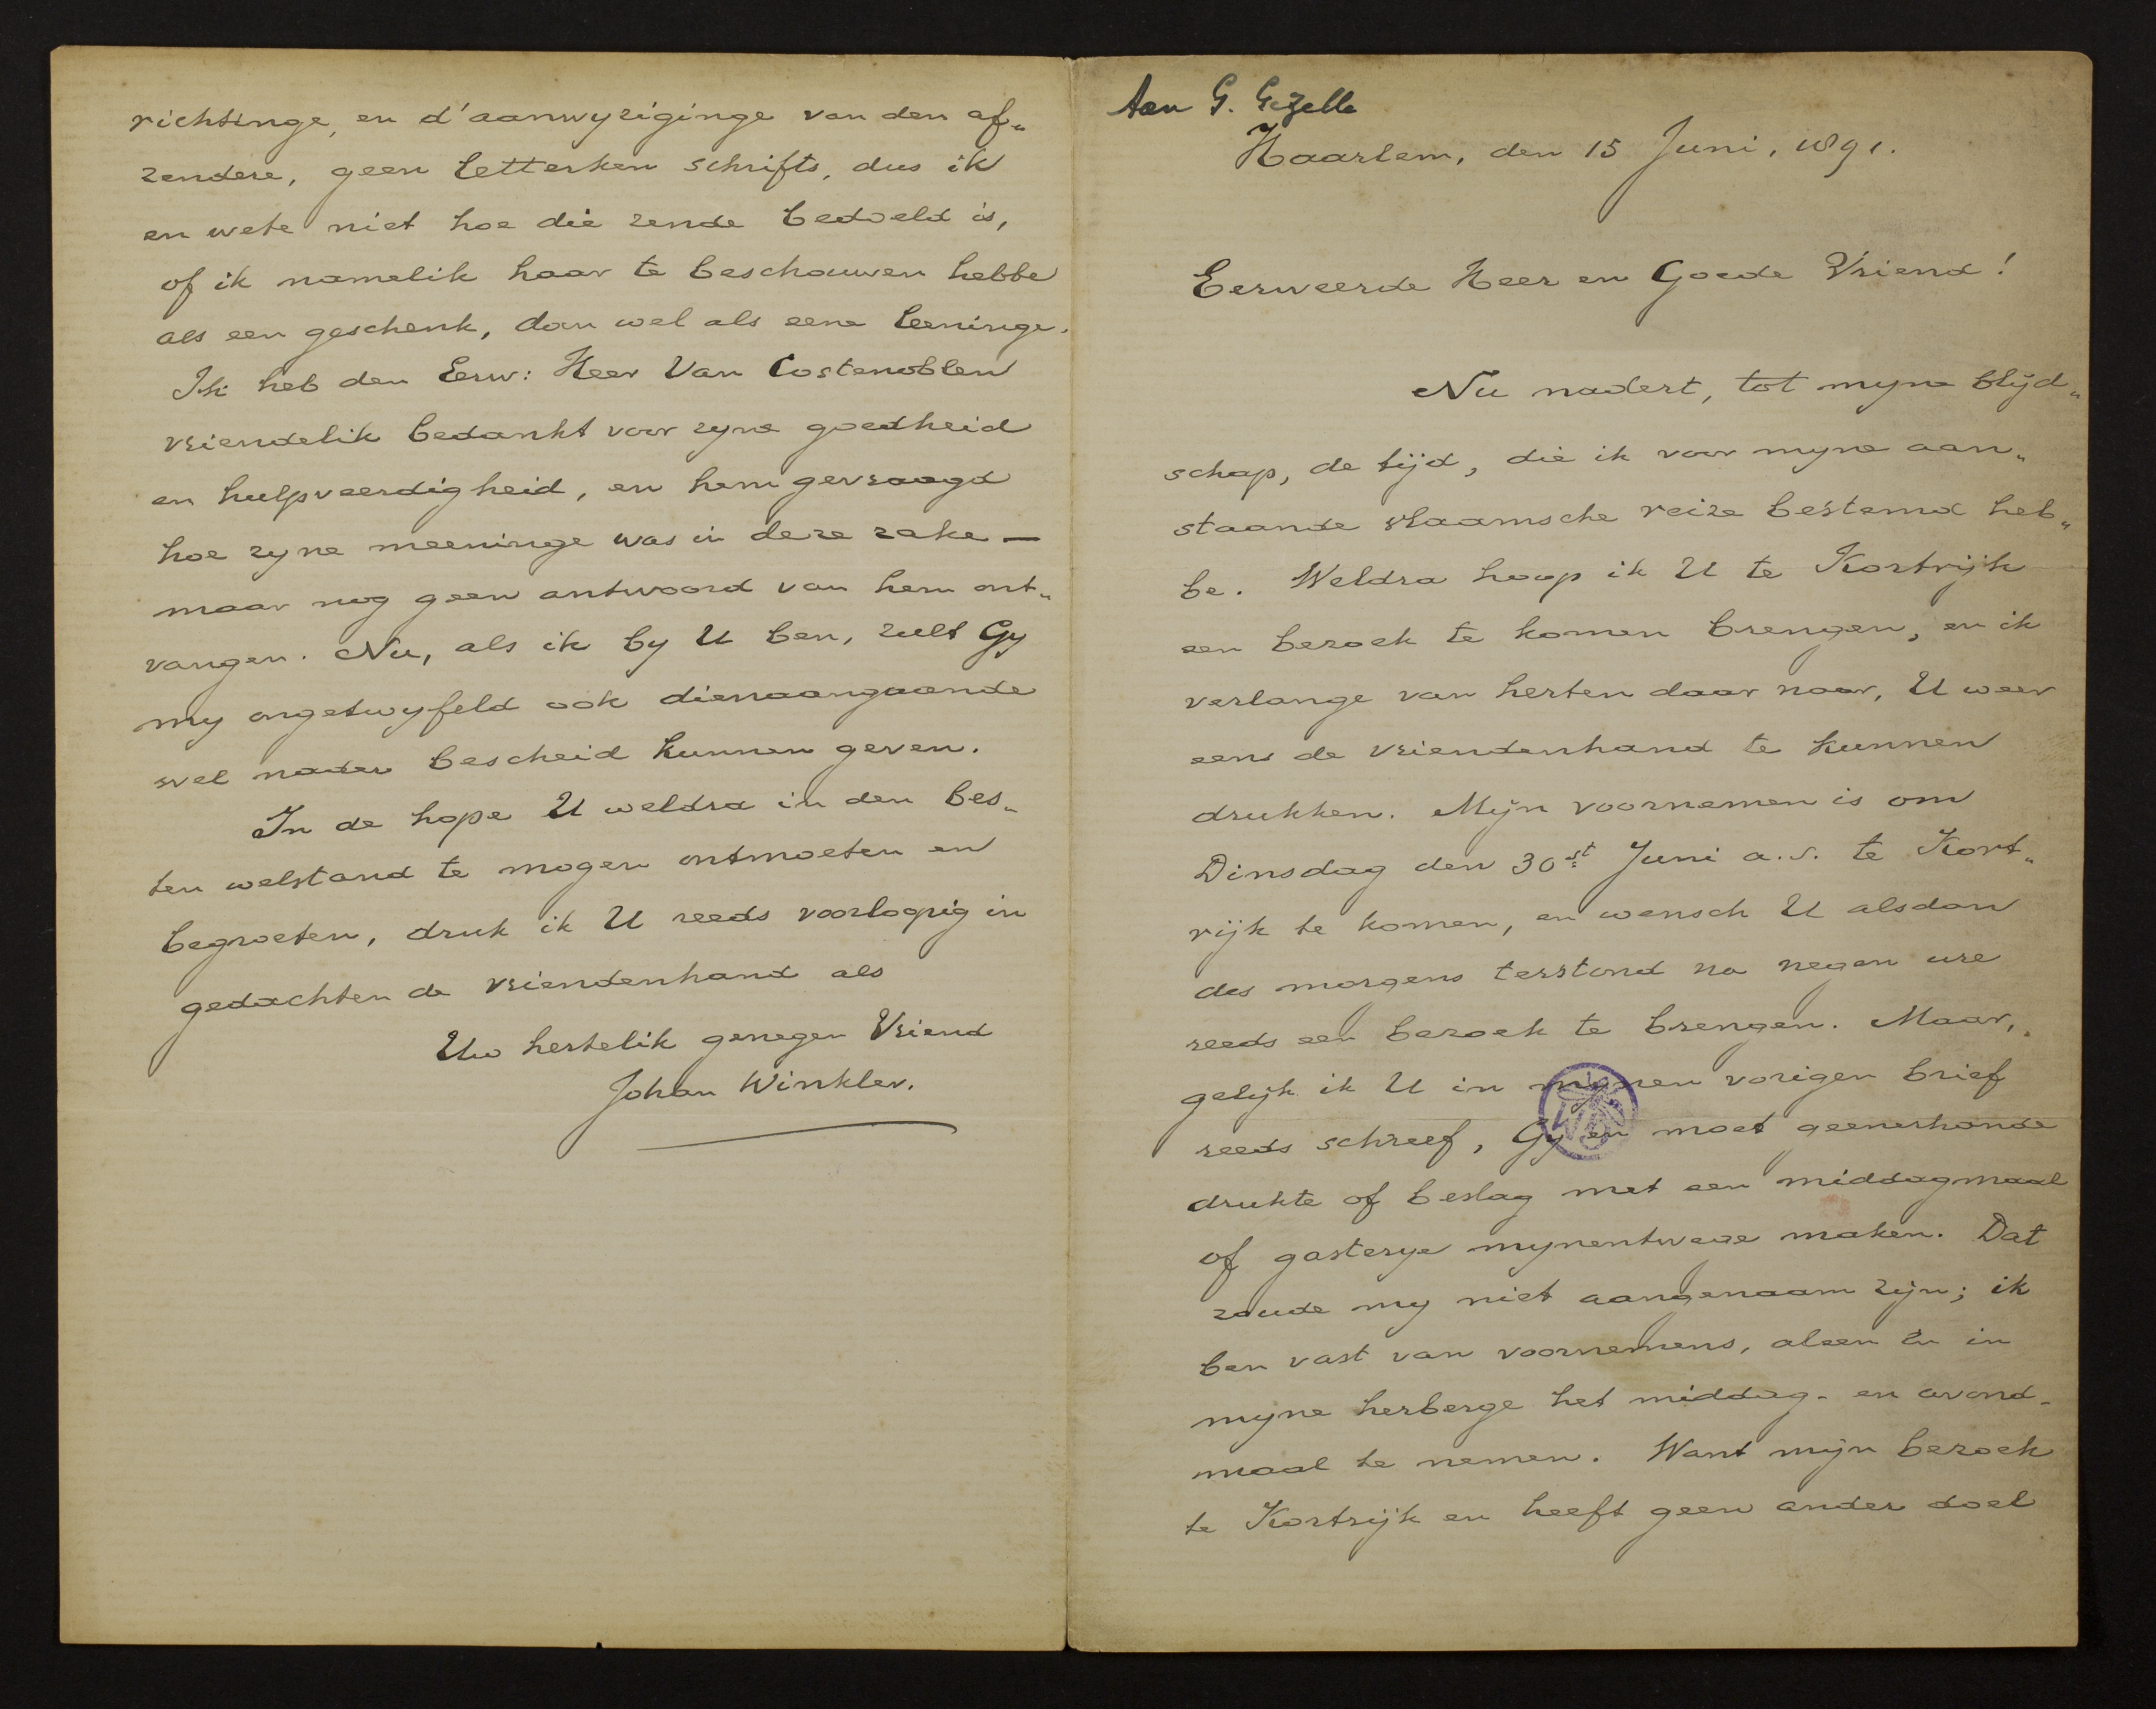 Aan G. Gezelle
Haarlem, den 15 Juni, 1891.
Eerweerde Heer en Goede Vriend!
Nu nadert, tot myne blijd„
schap, de tijd, die ik voor myne aan„
staande vlaamsche reize bestemd heb„
be. Weldra hoop ik U te Kortrijk
een bezoek te komen brengen, en ik
verlange van herten daar naar, U weer
eens de vriendenhand te kunnen
drukken. Mijn voornemen is om
Dinsdag den 30st Juni a.s. te Kort„
rijk te komen, en wensch U alsdan
des morgens terstond na negen ure
reeds een bezoek te brengen. Maar,
gelijk ik U in mynen vorigen brief
reeds schreef, Gy en moet geenerhande
drukte of beslag met een middagmaal
of gasterye mynentwege maken. Dat
zoude my niet aangenaam zijn; ik
ben vast van voornemens, aleen en in
myne herberge het middag- en avond-
maal te nemen. Want mijn bezoek
te Kortrijk en heeft geen ander doel
richtinge, en d'aanwyziginge van den af„
zendere, geen letterken schrifts, dus ik
en wete niet hoe die zende bedoeld is,
of ik namelik haar te beschouwen hebbe
als een geschenk, dan wel als eene leeninge.
Ik heb den Eerw: Heer Van Costenoblen
vriendelik bedankt voor zyne goedheid
en hulpveerdigheid, en hem gevraagd
hoe zyne meeninge was in deze zake —
maar nog geen antwoord van hem ont„
vangen. Nu, als ik by U ben, zult Gy
my ongetwyfeld ook dienaangaande
wel nader bescheid kunnen geven.
In de hope U weldra in den bes„
ten welstand te mogen ontmoeten en
begroeten, druk ik U reeds voorlopig in
gedachten de vriendenhand als
Uw hertelik genegen Vriend
Johan Winkler.